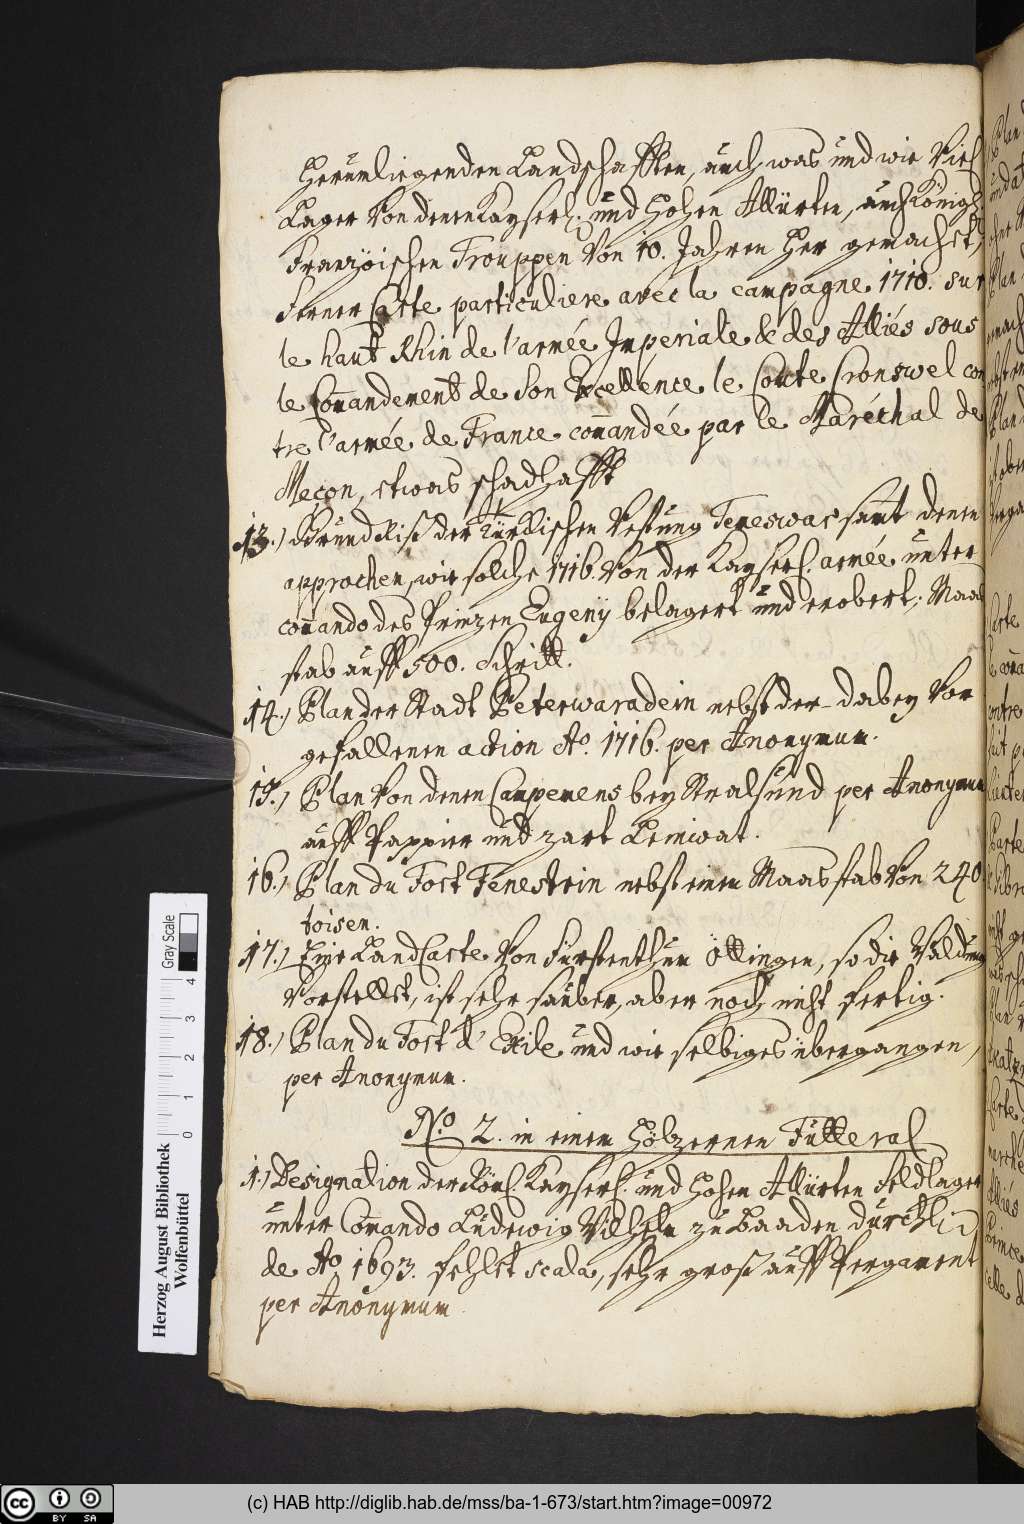 herumliegenden Landschafften, auch was und wie Viel
Lager Von denen Kayserl. und Hohen Alliirten, auch Königl.
Franzöischen Trouppen Von 10. Jahren her gemacht,
ferner Carte particuliere avec la campagne 1710. sur
le haut Rhin de l'armée Imperiale & des Alliés sous
le Com̄andement de Son Excellence le Comte Cronswel con
tre l'armée de France com̄andée par le Maréchal de
Meçon, etwas schadhafft
13.) Grund Riß der Türckischen Vestung Temeswar samt denen
approchen, wie solche 1716. Von der Kayserl. armée unter
com̄ando des Prinzen Eugenÿ belagert und erobert; Maas
stab auff 500. Schritt.
14.) Plan der Stadt Peterwaradein nebst der dabey Vor
gefallenen action Ao. 1716. per Anonymum.
15.) Plan Von denen Campemens bey Stralsund per Anonymum
auff Pappier und zart Leinwat.
16.) Plan du Fort Fenestrin nebst einem Maasstab Von 240
toisen.
17.) Eine Land Carte Von Fürstenthum Öttingen, so die Waldung
Vorstellet, ist sehr sauber, aber noch nicht fertig.
18.) Plan du Fort d'Exile und wie selbiges übergangen,
per Anonymum.
No. 2. in einem höltzernen Futteral
1.) Designation der Röm. Kayserl. und Hohen Alliirten Feldlager
unter Com̄ando Ludewig Wilhelm zu Baaden Durchl.
de Ao. 1693. fehlet scala, sehr groß auff Pergament
per Anonymum.
Herzog August Bibliothek
Wolfenbüttel
Gray Scale
0 1 2 3 4
BY SA
(c) HAB http://diglib.hab.de/mss/ba-1-673/start.htm?image=00972